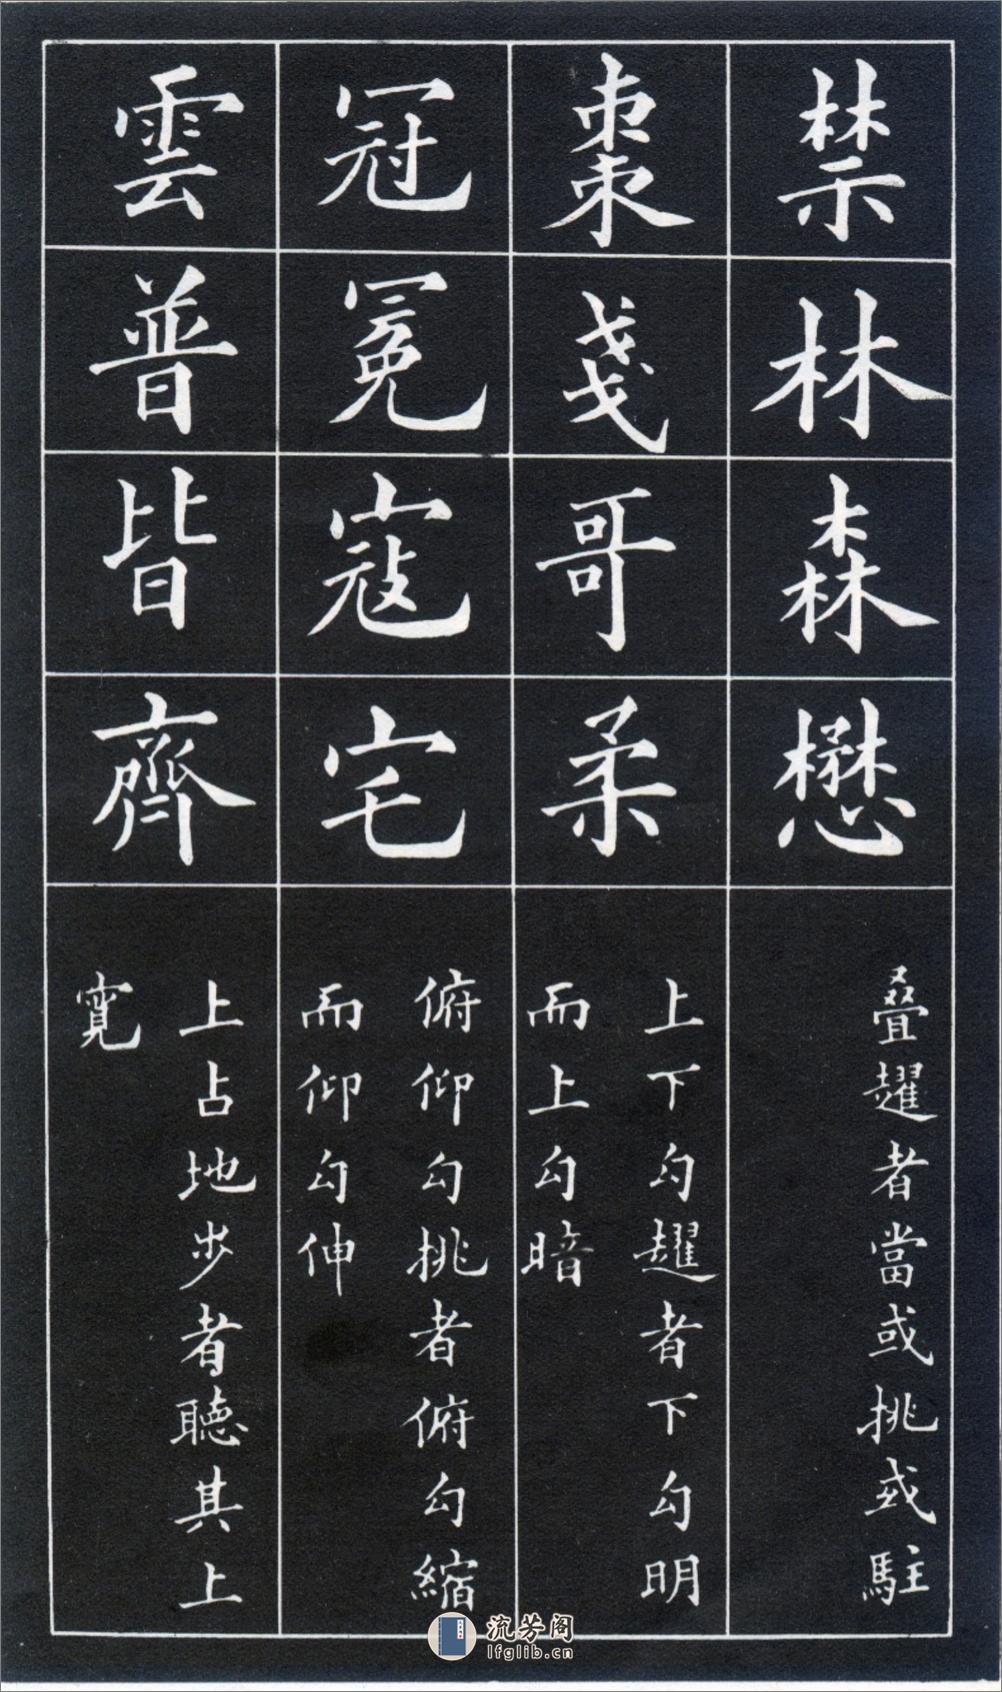 禁林森懋
疊趯者當或挑或駐
棗戔哥柔
上下勾趯者下勾明
而上勾暗
冠冕寇宅
俯仰勾挑者俯勾縮
而仰勾伸
雲普皆齊
上占地步者聽其上
寬
流芳阁
lfglib.cn